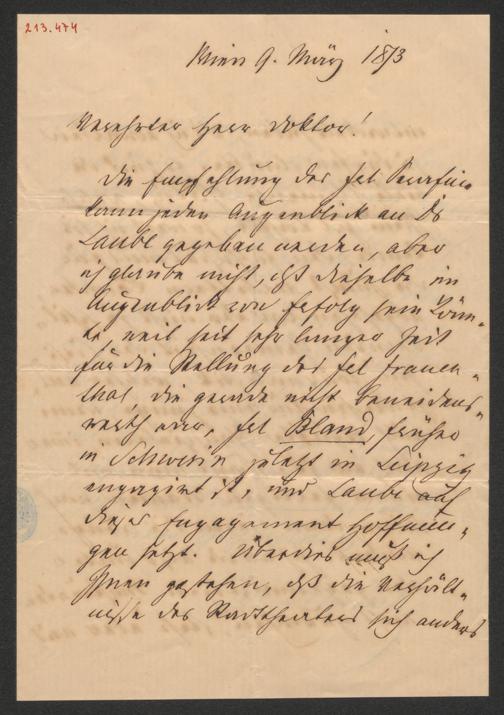 213.474
Wien 9. März 1873
Verehrter Herr Doktor!
Die Empfehlung des Frl Serafin
kann jeden Augenblick an Dr
Laube gegeben werden, aber
ich glaube nicht, daß dieselbe im
Augenblick von Erfolg sein könn-
te, weil seit sehr langer Zeit
für die Stellung des Frl Frauen-
thal, die gerade nicht beneidens-
werth war, Frl Bland, früher
in Schwerin zuletzt in Leipzig
engagirt ist, und Laube auf
dieses Engagement Hoffnun-
gen setzt. Überdies muß ich
Ihnen gestehen, daß die Verhält-
nisse des Stadttheaters sich anders